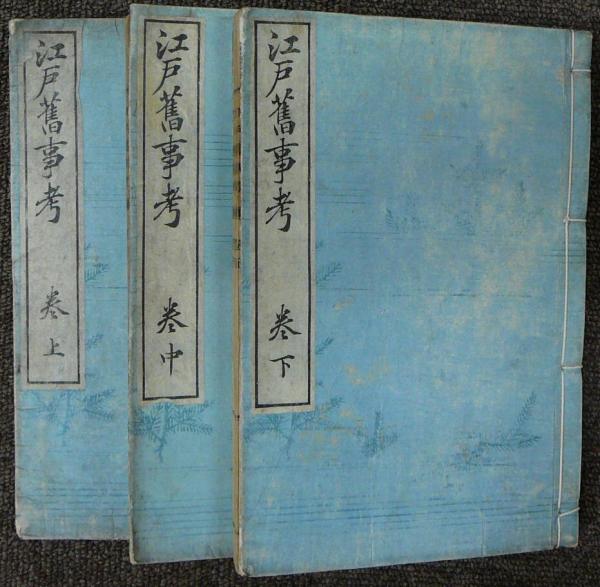 江戸舊事考
巻上
江戸舊事考
巻中
江戸舊事考
巻下